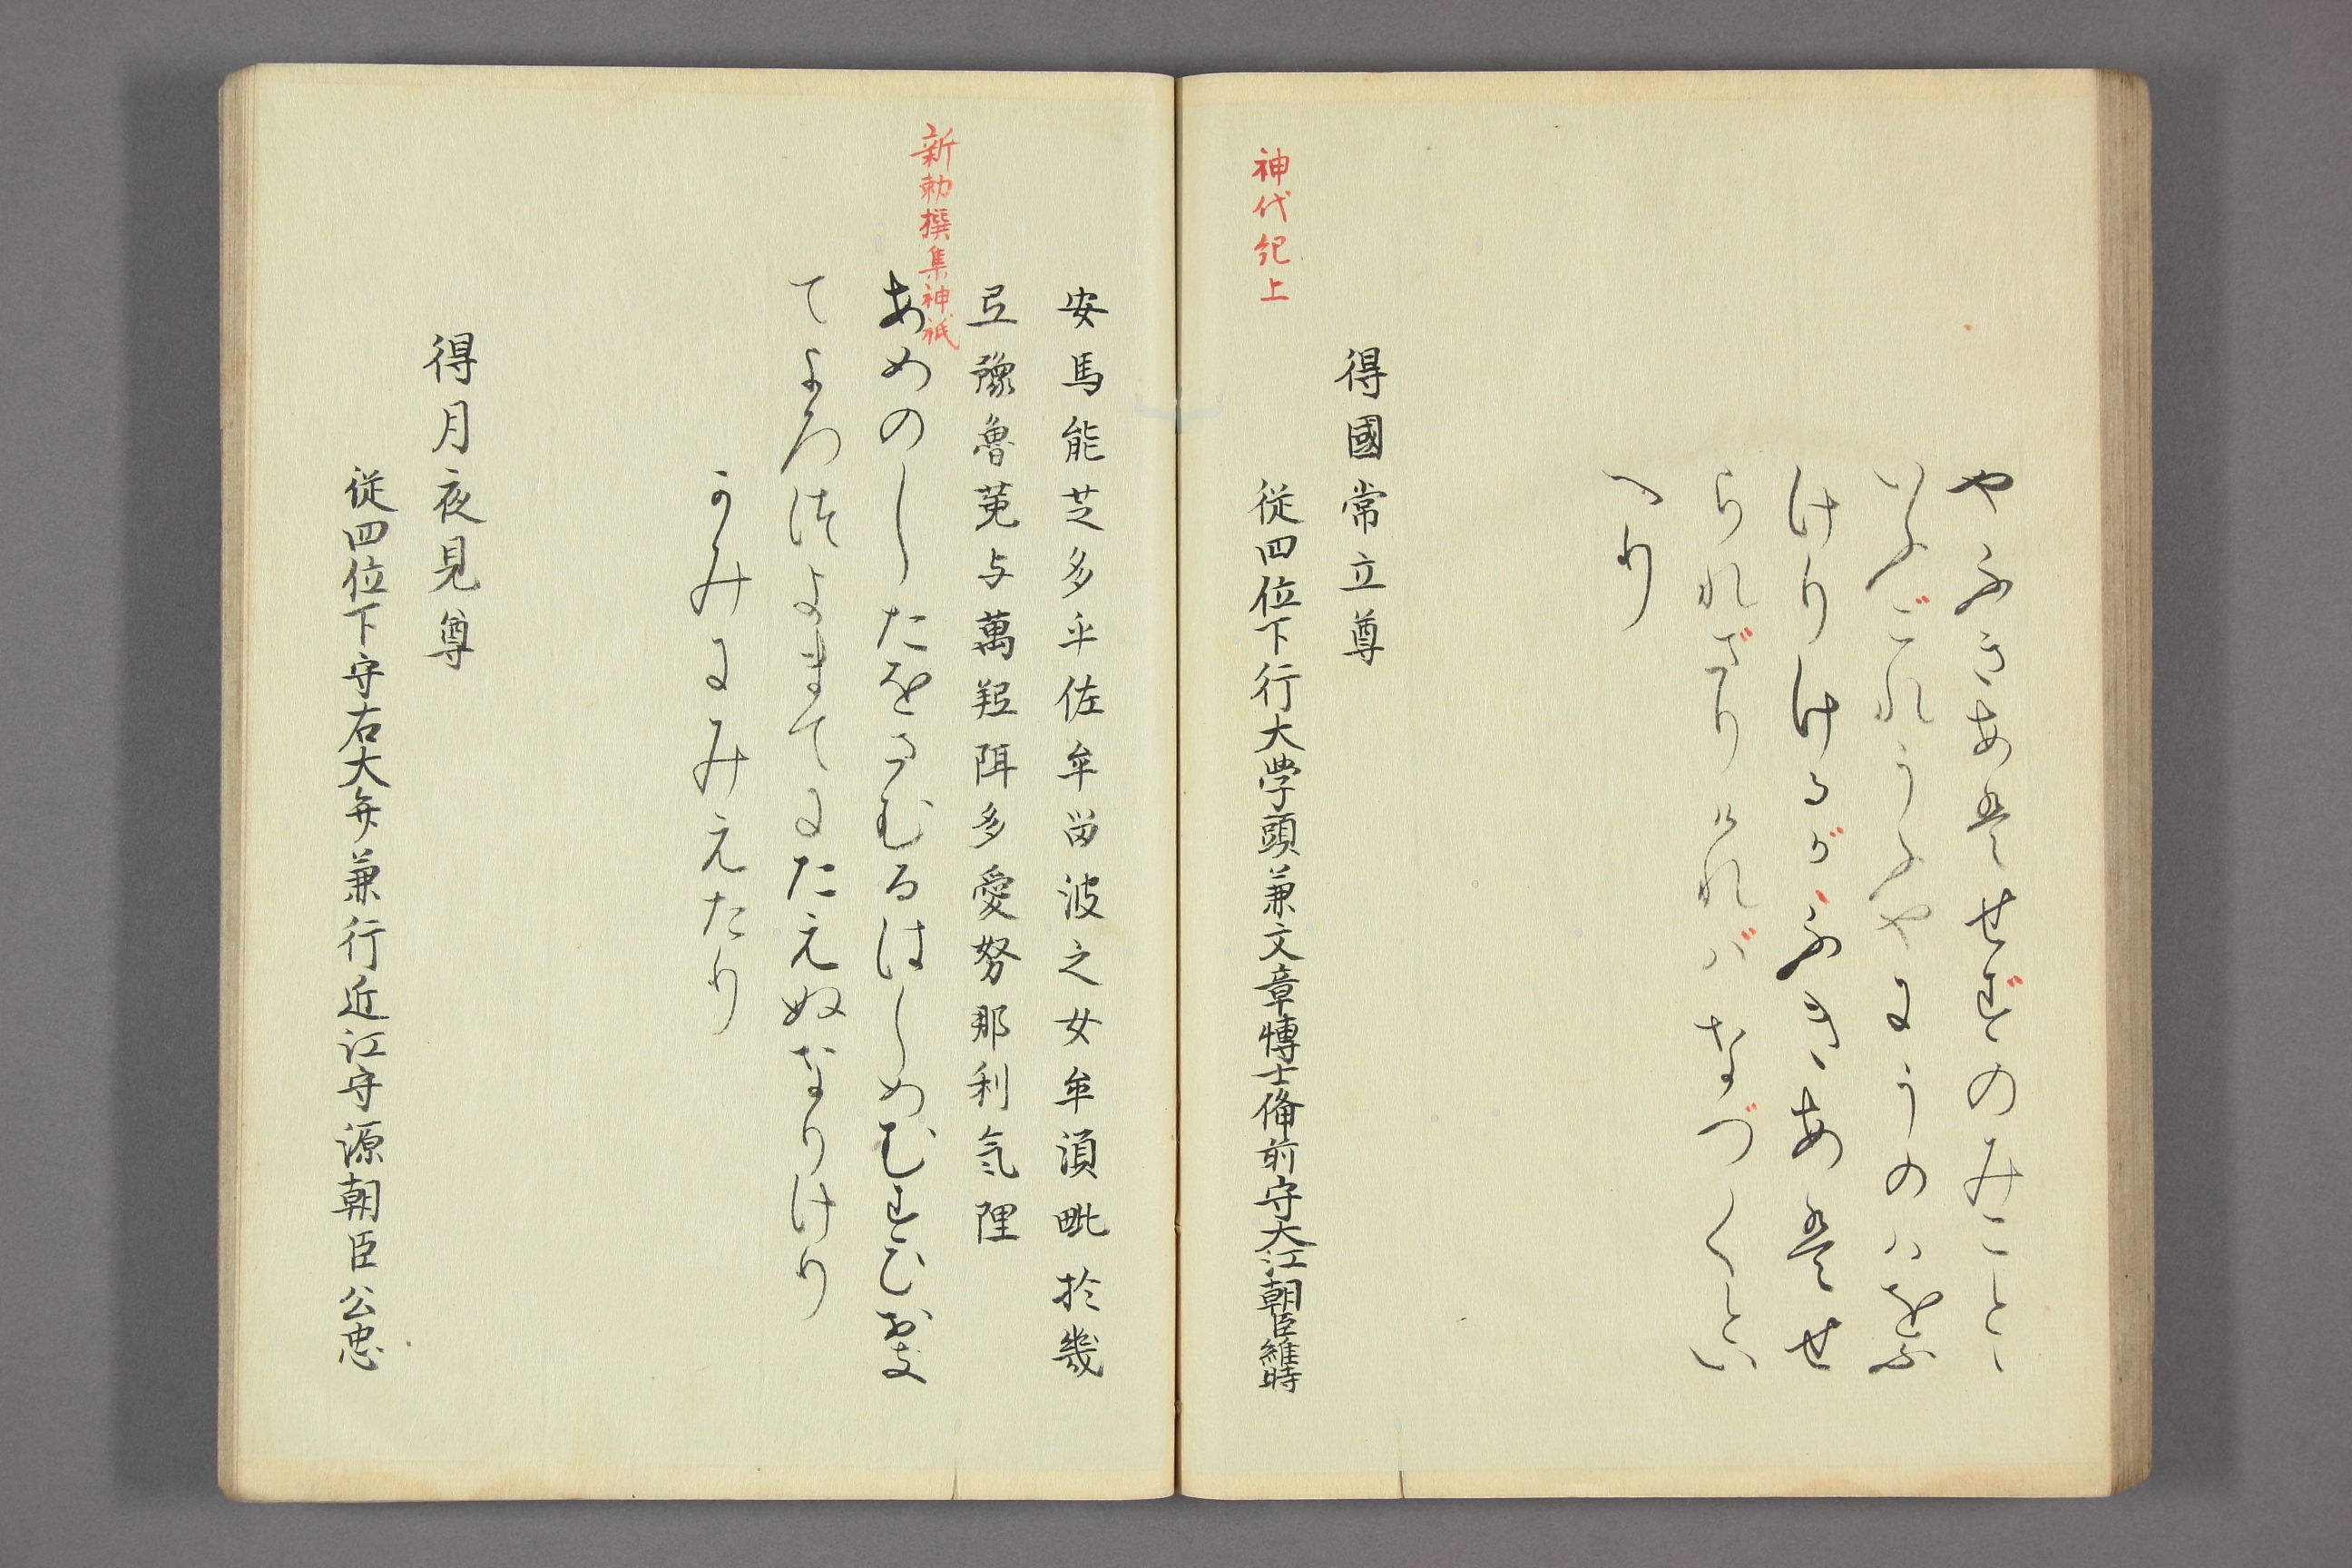 やふきあはせずのみことゝ
いふごれうふやにうのハをふ
けりけるがふきあはせ
られざりければなづくとい
へり
得國常立尊
神代紀上
従四位下行大学頭兼文章博士備前守大江朝臣維時
安馬能芝多乎佐牟留波之女牟湏毗於幾
弖豫魯莵与萬弖珥多愛努那利気狸
新勅撰集神祇
あめのしたをさむるはしめむすひおき
てよろつよまてにたえぬなりけり
かみにみえたり
得月夜見尊
従四位下守右大弁兼行近江守源朝臣公忠